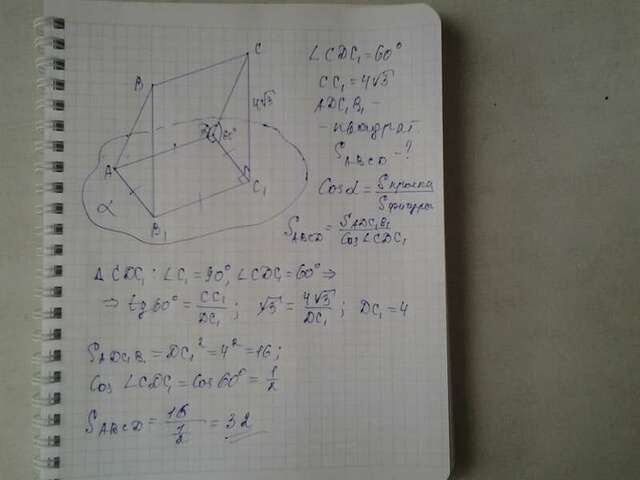 B
C
4√3
D
60°
A
α
B₁
C₁
∠CDC₁=60°
CC₁=4√3
ADC₁B₁ -
- квадрат.
S_ABCD -?
Cosα = Sпроекц / Sфигуры
S_ABCD = S_ADC₁B₁ / Cos∠CDC₁
Δ CDC₁: ∠C₁=90°, ∠CDC₁=60° ⇒
⇒ tg60° = CC₁/DC₁; √3 = 4√3/DC₁; DC₁=4
S_ADC₁B₁ = DC₁² = 4² = 16;
Cos ∠CDC₁ = Cos60° = 1/2
S_ABCD = 16/(1/2) = 32